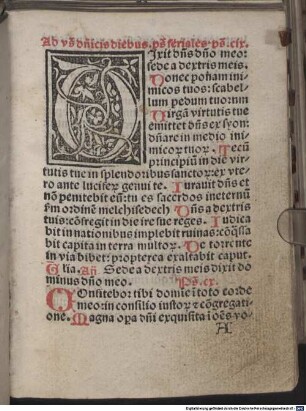 Ad vs̃ dñicis diebus. ps̃ feriales. ps. cix.
Dixit dñs dño meo:
sede a dextris meis.
Donec ponam ini
micos tuos: scabel
lum pedum tuorum
Uirgã virtutis tue
emittet dñs ex syon:
dñare in medio ini
micoꝝ tuoꝝ. Tecũ
principiũ in die vir
tutis tue in splendoribus sanctoꝝ: ex vte
ro ante lucifeꝝ genui te. Iurauit dñs et
nõ penitebit eũ: tu es sacerdos in eternũ
ßm ordinẽ melchisedech Dñs a dextris
tuis: cõfregit in die ire sue reges. Iudica
bit in nationibus implebit ruinas: cõq̃ssa
bit capita in terra multoꝝ. De torrente
in via bibet: propterea exaltabit caput.
Glia. Añ. Sede a dextris meis dixit do
minus dño meo. Ps. cx.
Confitebor tibi domine ĩ toto corde
meo: in consilio iustoꝝ ⁊ cõgregati
one. Magna oꝑa dñi: exquisita ĩ oẽs vo-
A